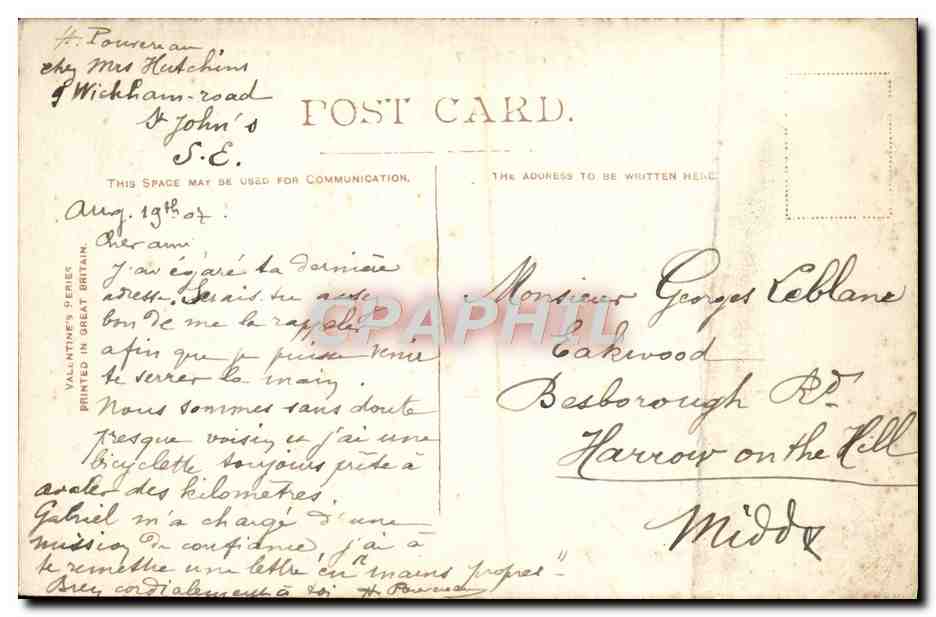 H. Pouvereau
chez Mrs Hutchins
9 Wickham-road
St John's
S.E.
POST CARD.
THIS SPACE MAY BE USED FOR COMMUNICATION.
THE ADDRESS TO BE WRITTEN HERE
VALENTINE'S SERIES
PRINTED IN GREAT BRITAIN.
Aug. 19th 07.
Cher ami
J'ai égaré ta dernière
adresse. Serais-tu assez
bon de me la rappeler
afin que je puisse venir
te serrer la main.
Nous sommes sans doute
presque voisins et j'ai une
bicyclette toujours prête à
avaler des kilomètres.
Gabriel m'a chargé d'une
mission de confiance, j'ai à
te remettre une lettre "en mains propres"-
Bien cordialement à toi H. Pouvereau
Monsieur Georges Leblanc
Oakwood
Besborough Rd.
Harrow on the Hill
Middx
CPAPHIL